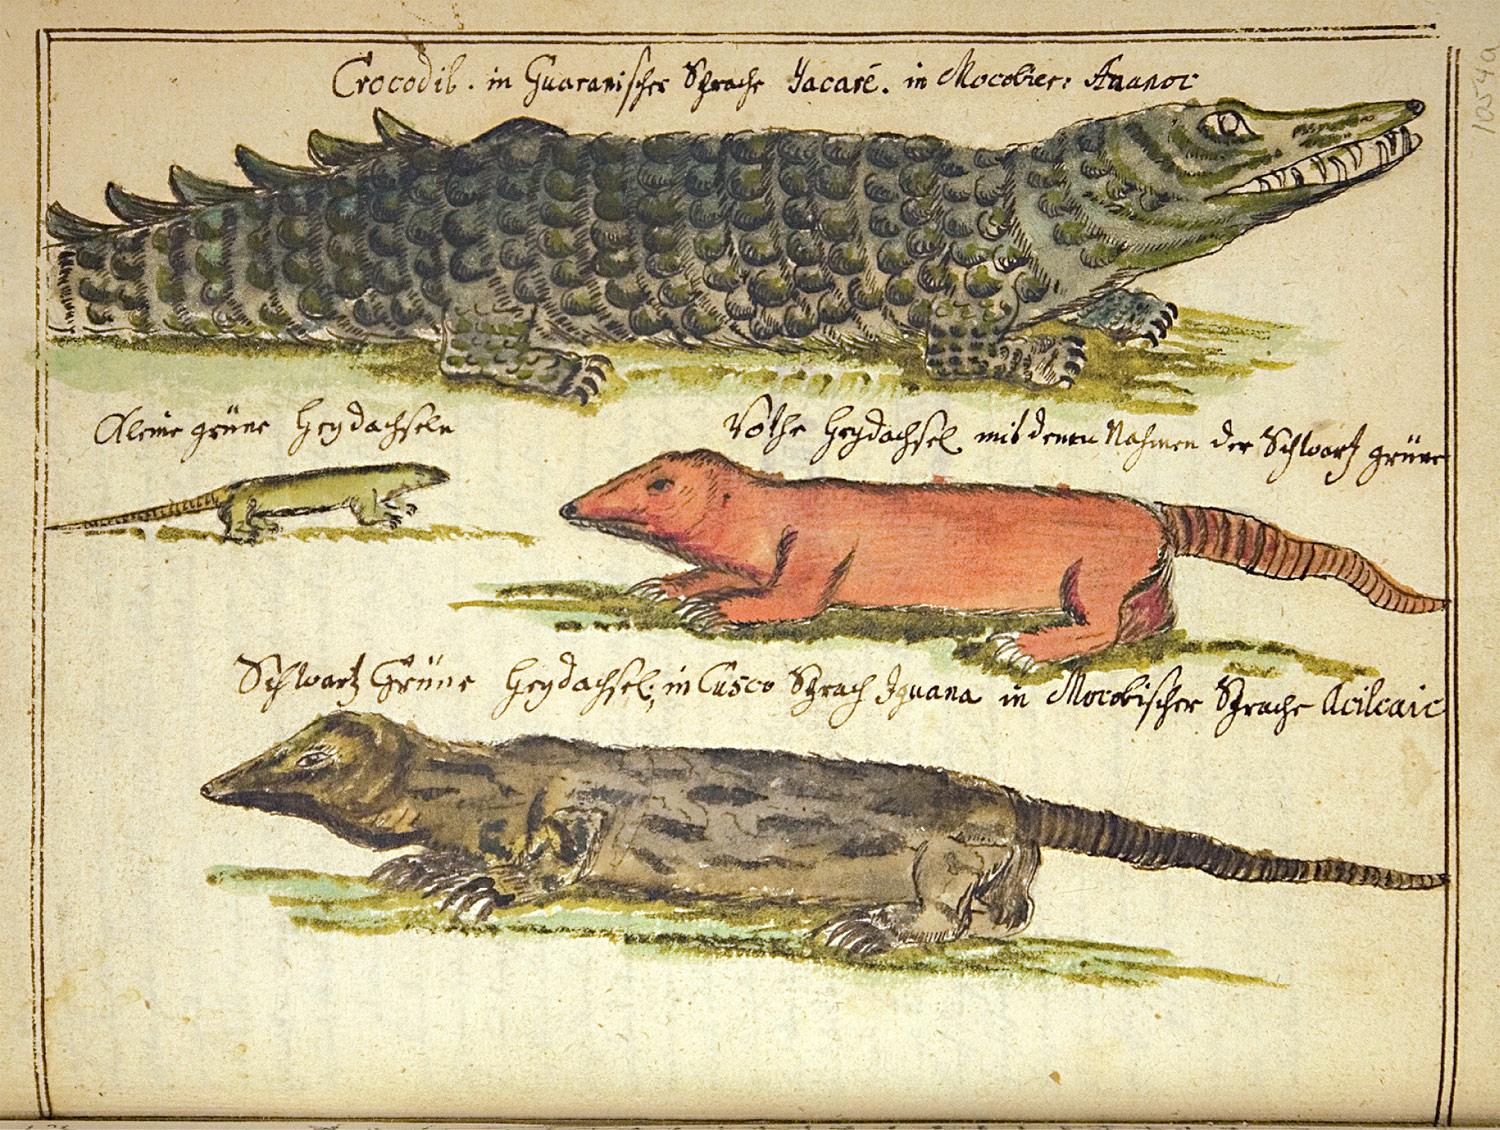 Crocodil. in Guaranischer Sprache Yacaré. in Mocobier: Ananoc
Kleine grüne Heydachseln
Rothe Heydachsel mit denen Nahmen der Schwartz grüne
Schwartz Grüne Heydachsel; in Cusco Sprach Iguana in Mocobischer Sprache Acilcaic
10254a